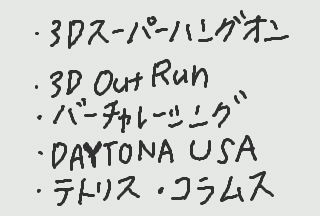 ・3Dスーパーハングオン
・3D Out Run
・バーチャレーシング
・DAYTONA USA
・テトリス・コラムス